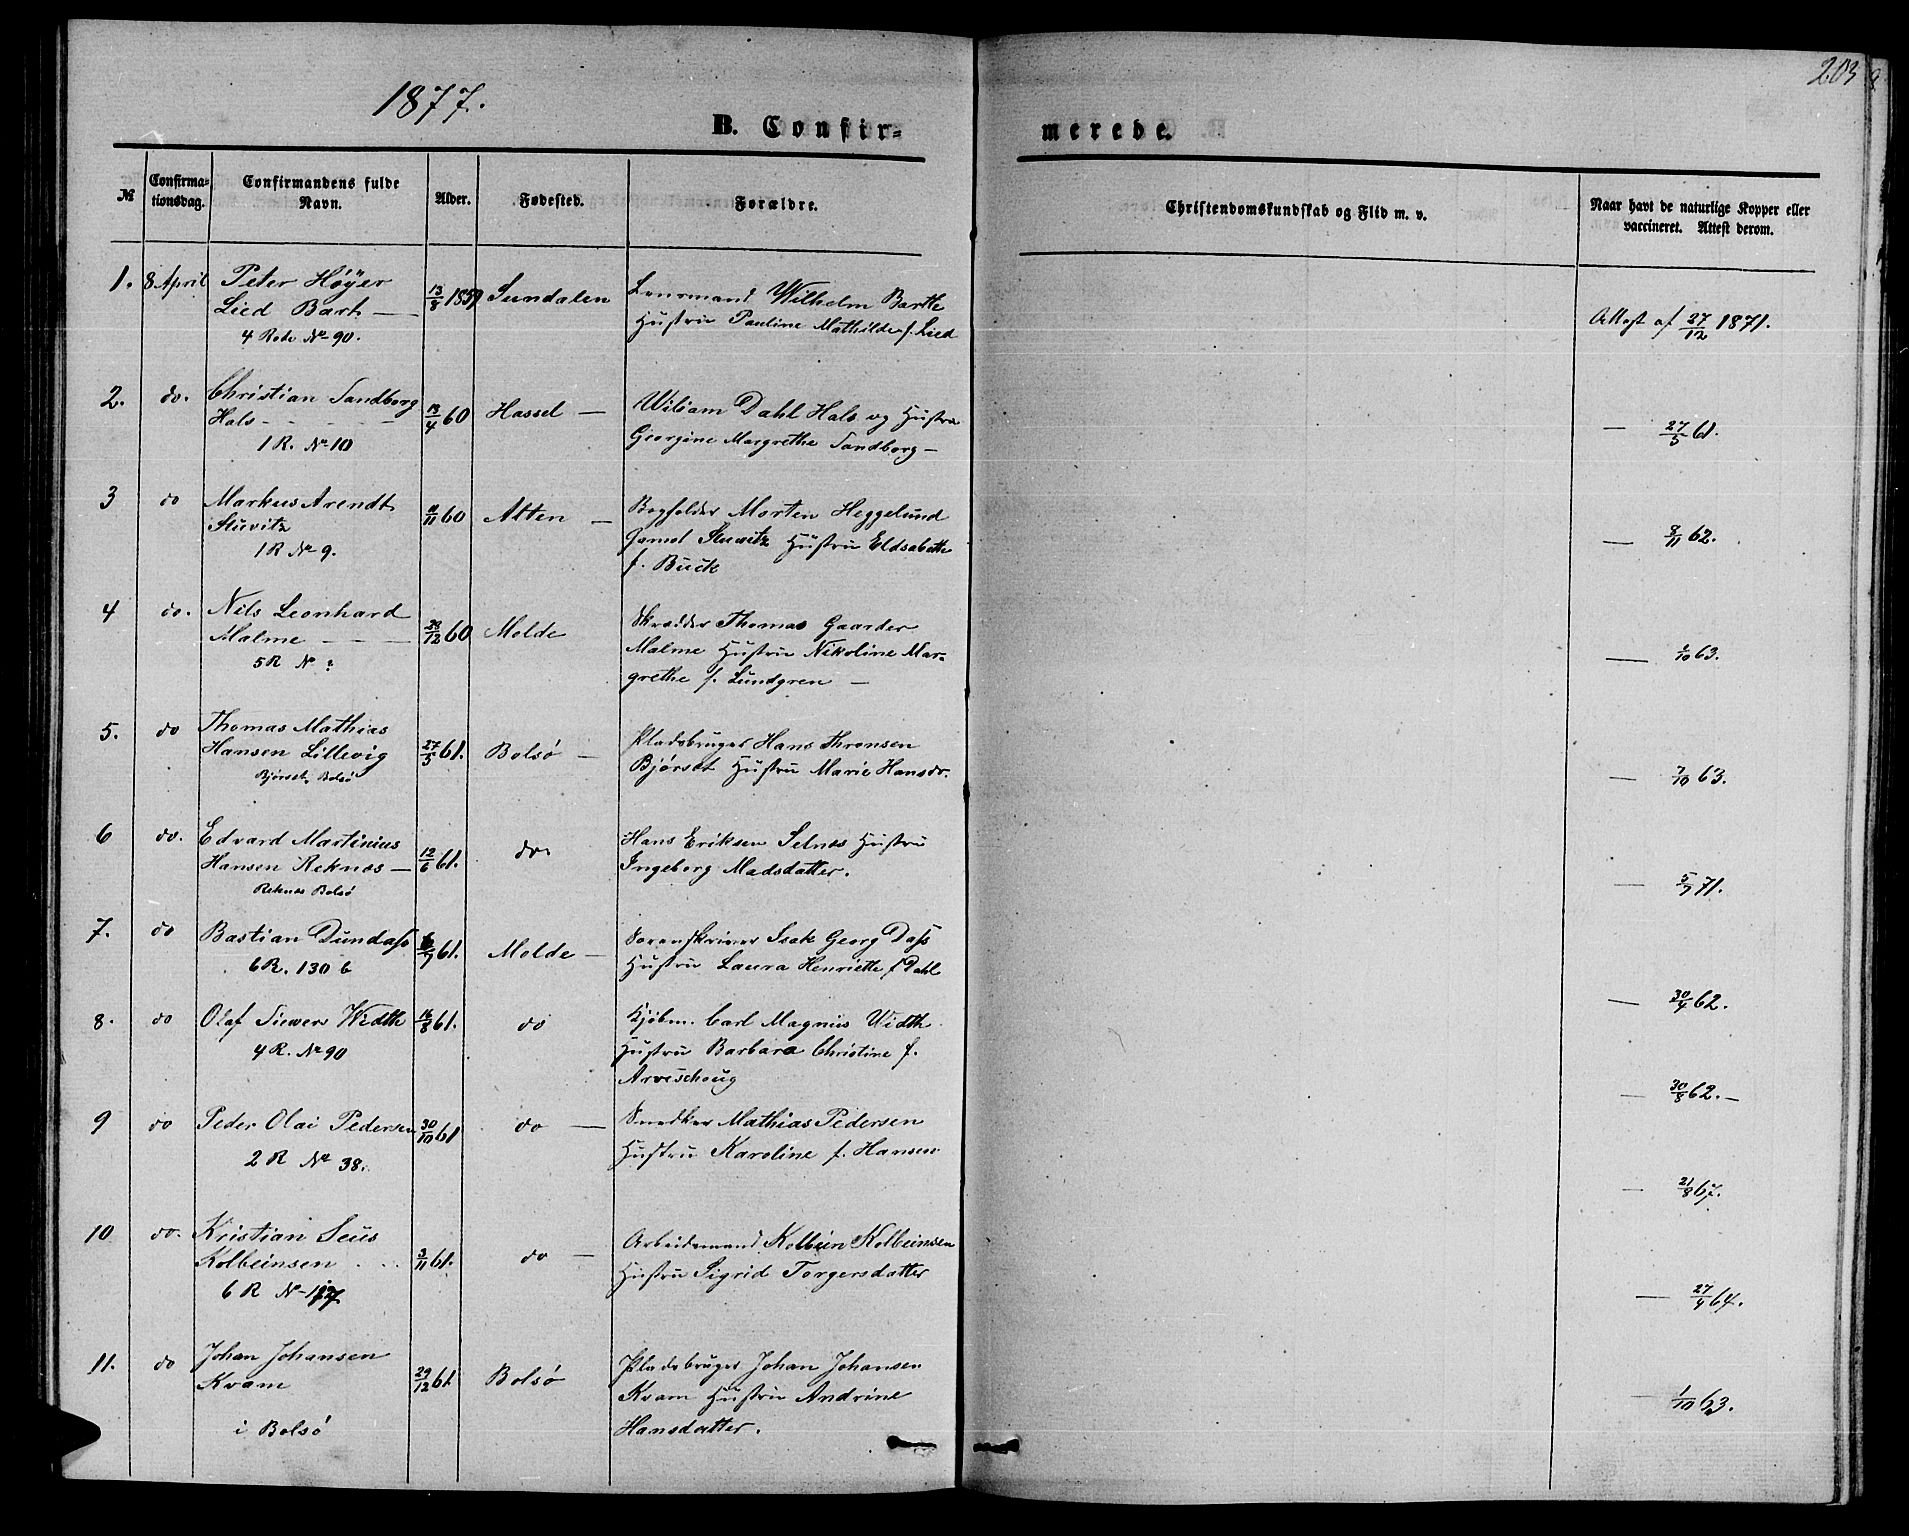 203
1877.
B. Confir=
merede.
№
Confirma=
tionsdag.
Confirmandens fulde
Navn.
Alder.
Fødested.
Forældre.
Christendomskundskab og Flid m. v.
Naar havt de naturlige Kopper eller
vaccineret. Attest derom.
1. 8 April Peter Höyer 13/8 1859 Sundalen Lensmand Wilhelm Barth
Lied Bart — Hustru Pauline Mathilde f. Lied
4 Rode № 90.
Attest af 27/12 1871.
2. do. Christian Sandborg 13/4 60 Hassel — Wiliam Dahl Hals og Hustru
Hals - - - - Georgine Margrethe Sandborg —
1 R. № 10
— 27/5 61.
3 do Markus Arendt 11/11 60 Alten — Bogholder Morten Heggelund
Stuvitz Gamst Stuwitz Hustru Eldsabeth
1 R № 9. f. Buck
— 9/11 62.
4 do. Nils Leonhard 29/12 60 Molde Skrædder Thomas Gaarder
Malme — — — Malme Hustru Nikoline Mar=
5 R № ? grethe f. Lundgren —
— 2/10 63.
5. do Thomas Mathias 27/5 61. Bolsø — Pladsbruger Hans Thronsen
Hansen Lillevig Bjørset Hustru Marie Hansdr.
Bjørset, Bolsø
— 7/10 63.
6 do. Edvard Martinius 12/6 61. do. Hans Eriksen Selnæs Hustru
Hansen Reknæs — Ingeborg Madsdatter.
Reknæs Bolsø
— 5/7 71.
7. do Bastian Dundass /7 61. Molde — Sorenskriver Isak Georg Dass
6 R. 130 b Hustru Laura Henriette f Dahl
— 30/4 62.
8. do Olaf Siewers Width 16/8 61. do Kjøbm. Carl Magnus Width
4 R. № 90 Hustru Barbara Christine f.
Arveschoug
— 30/8 62. —
9 do Peder Olai Pedersen 30/10 61 do — Snedker Mathias Pedersen
2 R № 38. Hustru Karoline f. Hansen
— 21/8 67.
10 do. Kristian Seus 3/11 61. do — Arbeidsmand Kolbein Kolbeinsen
Kolbeinsen . . . Hustru Sigrid Torgersdatter
6 R №
— 27/4 64.
11. do Johan Johansen 29/12 61. Bolsø Pladsbruger Johan Johansen
Kvam Kvam Hustru Andrine
i Bolsø Hansdatter.
— 1/10 63.